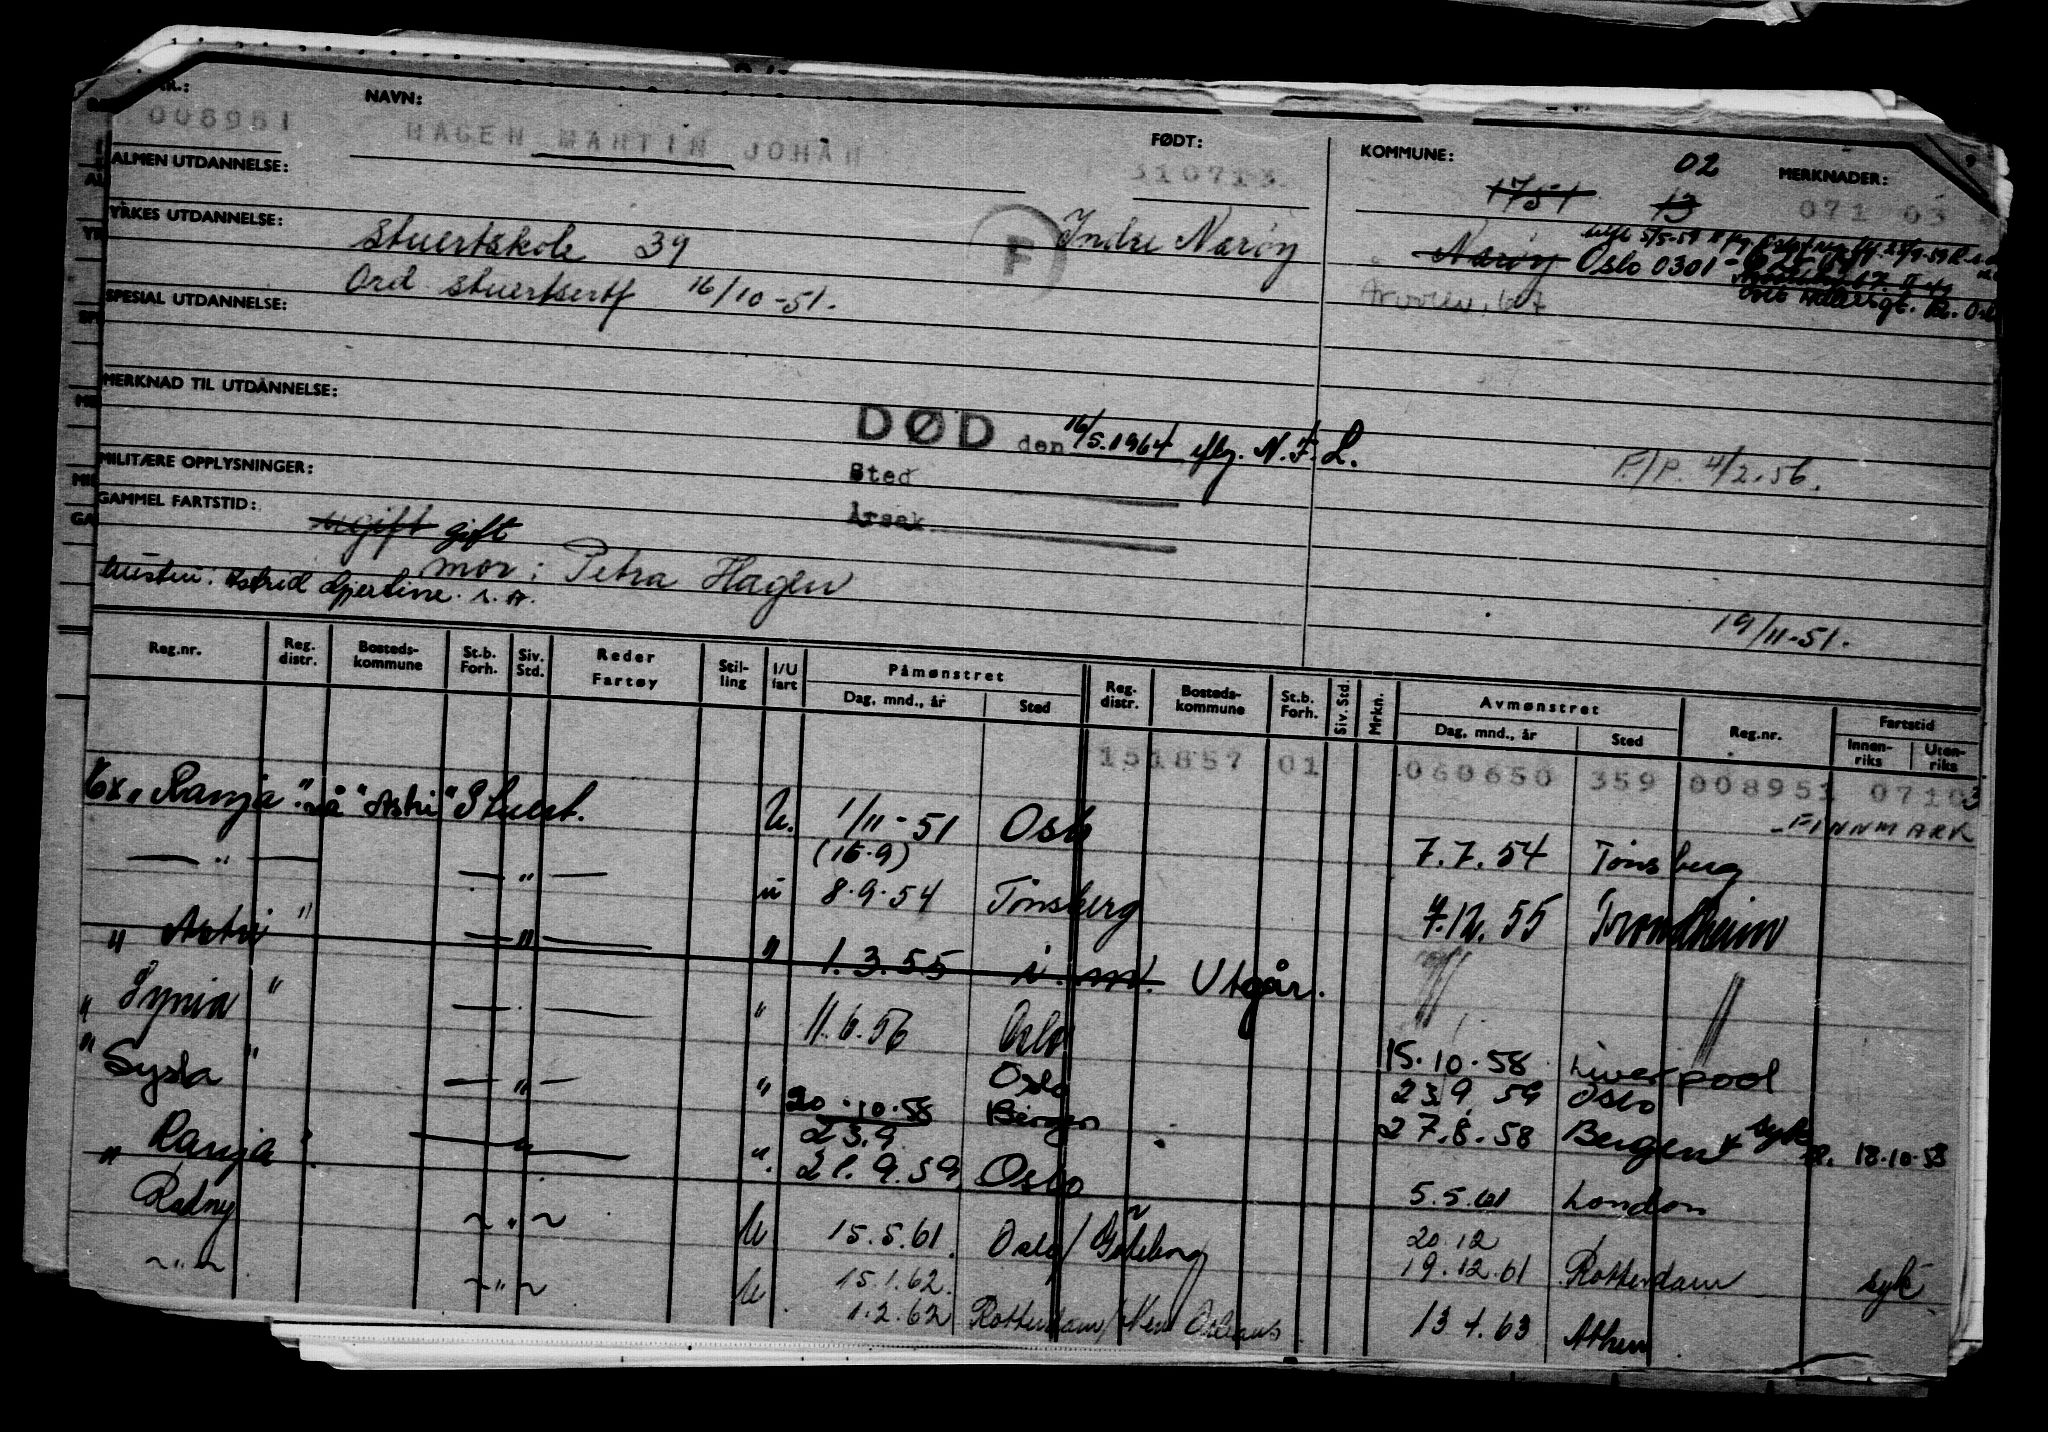 NR.: NAVN: FØDT: KOMMUNE: 02 MERKNADER:
008951 HAGEN MARTIN JOHAN 310713 1751 13 071 03
ALMEN UTDANNELSE:
YRKES UTDANNELSE: Stuertskole 39 F Indre Nærøy Nærøy Oslo 0301
Ord. stuertsertf 16/10-51.
SPESIAL UTDANNELSE:
MERKNAD TIL UTDANNELSE:
DØD den 16/5.1964 iflg. N.F.L.
MILITÆRE OPPLYSNINGER: Sted P./P. 4/2.56.
GAMMEL FARTSTID: Årsak
ugift gift
mor: Petra Hagen
hustru: Astrid s.a.
19/11-51.
Reg.nr. Reg. distr. Bosteds-kommune St.b. Forh. Siv. Std. Reder Fartøy Stil-ling I/U fart Påmønstret Dag, mnd., år Sted Reg. distr. Bosteds-kommune St.b. Forh. Siv. Std. Mrkn. Avmønstret Dag, mnd., år Sted Reg.nr. Fartstid Innen-riks Uten-riks
151857 01 060650 359 008951 07103
FINNMARK
Ex "Ranja" nå "Astri" Stuert. U. 1/11-51 Oslo 7.7.54 Tønsberg
(15.9)
— " — — " — u 8.9.54 Tønsberg 7.12.55 Trondheim
" Astri " — " — " 1.3.55 i. m. Utgår.
" — — " 11.6.56 Oslo 15.10.58 Liverpool
" Sysla " — " — " Oslo 23.9.59 Oslo
20.10.58 Bergen 27.8.58 Bergen syk 18.10.58
23.9.
" Ranja — " — " 21.9.59 Oslo 5.5.61 London
Radny ~ " ~ U 15.5.61. Oslo/Gøteborg 20.12
19.12.61 Rotterdam syk
~ " ~ ~ " ~ U 15.1.62.
1.2.62 Rotterdam/New Orleans 13.1.63 Athen